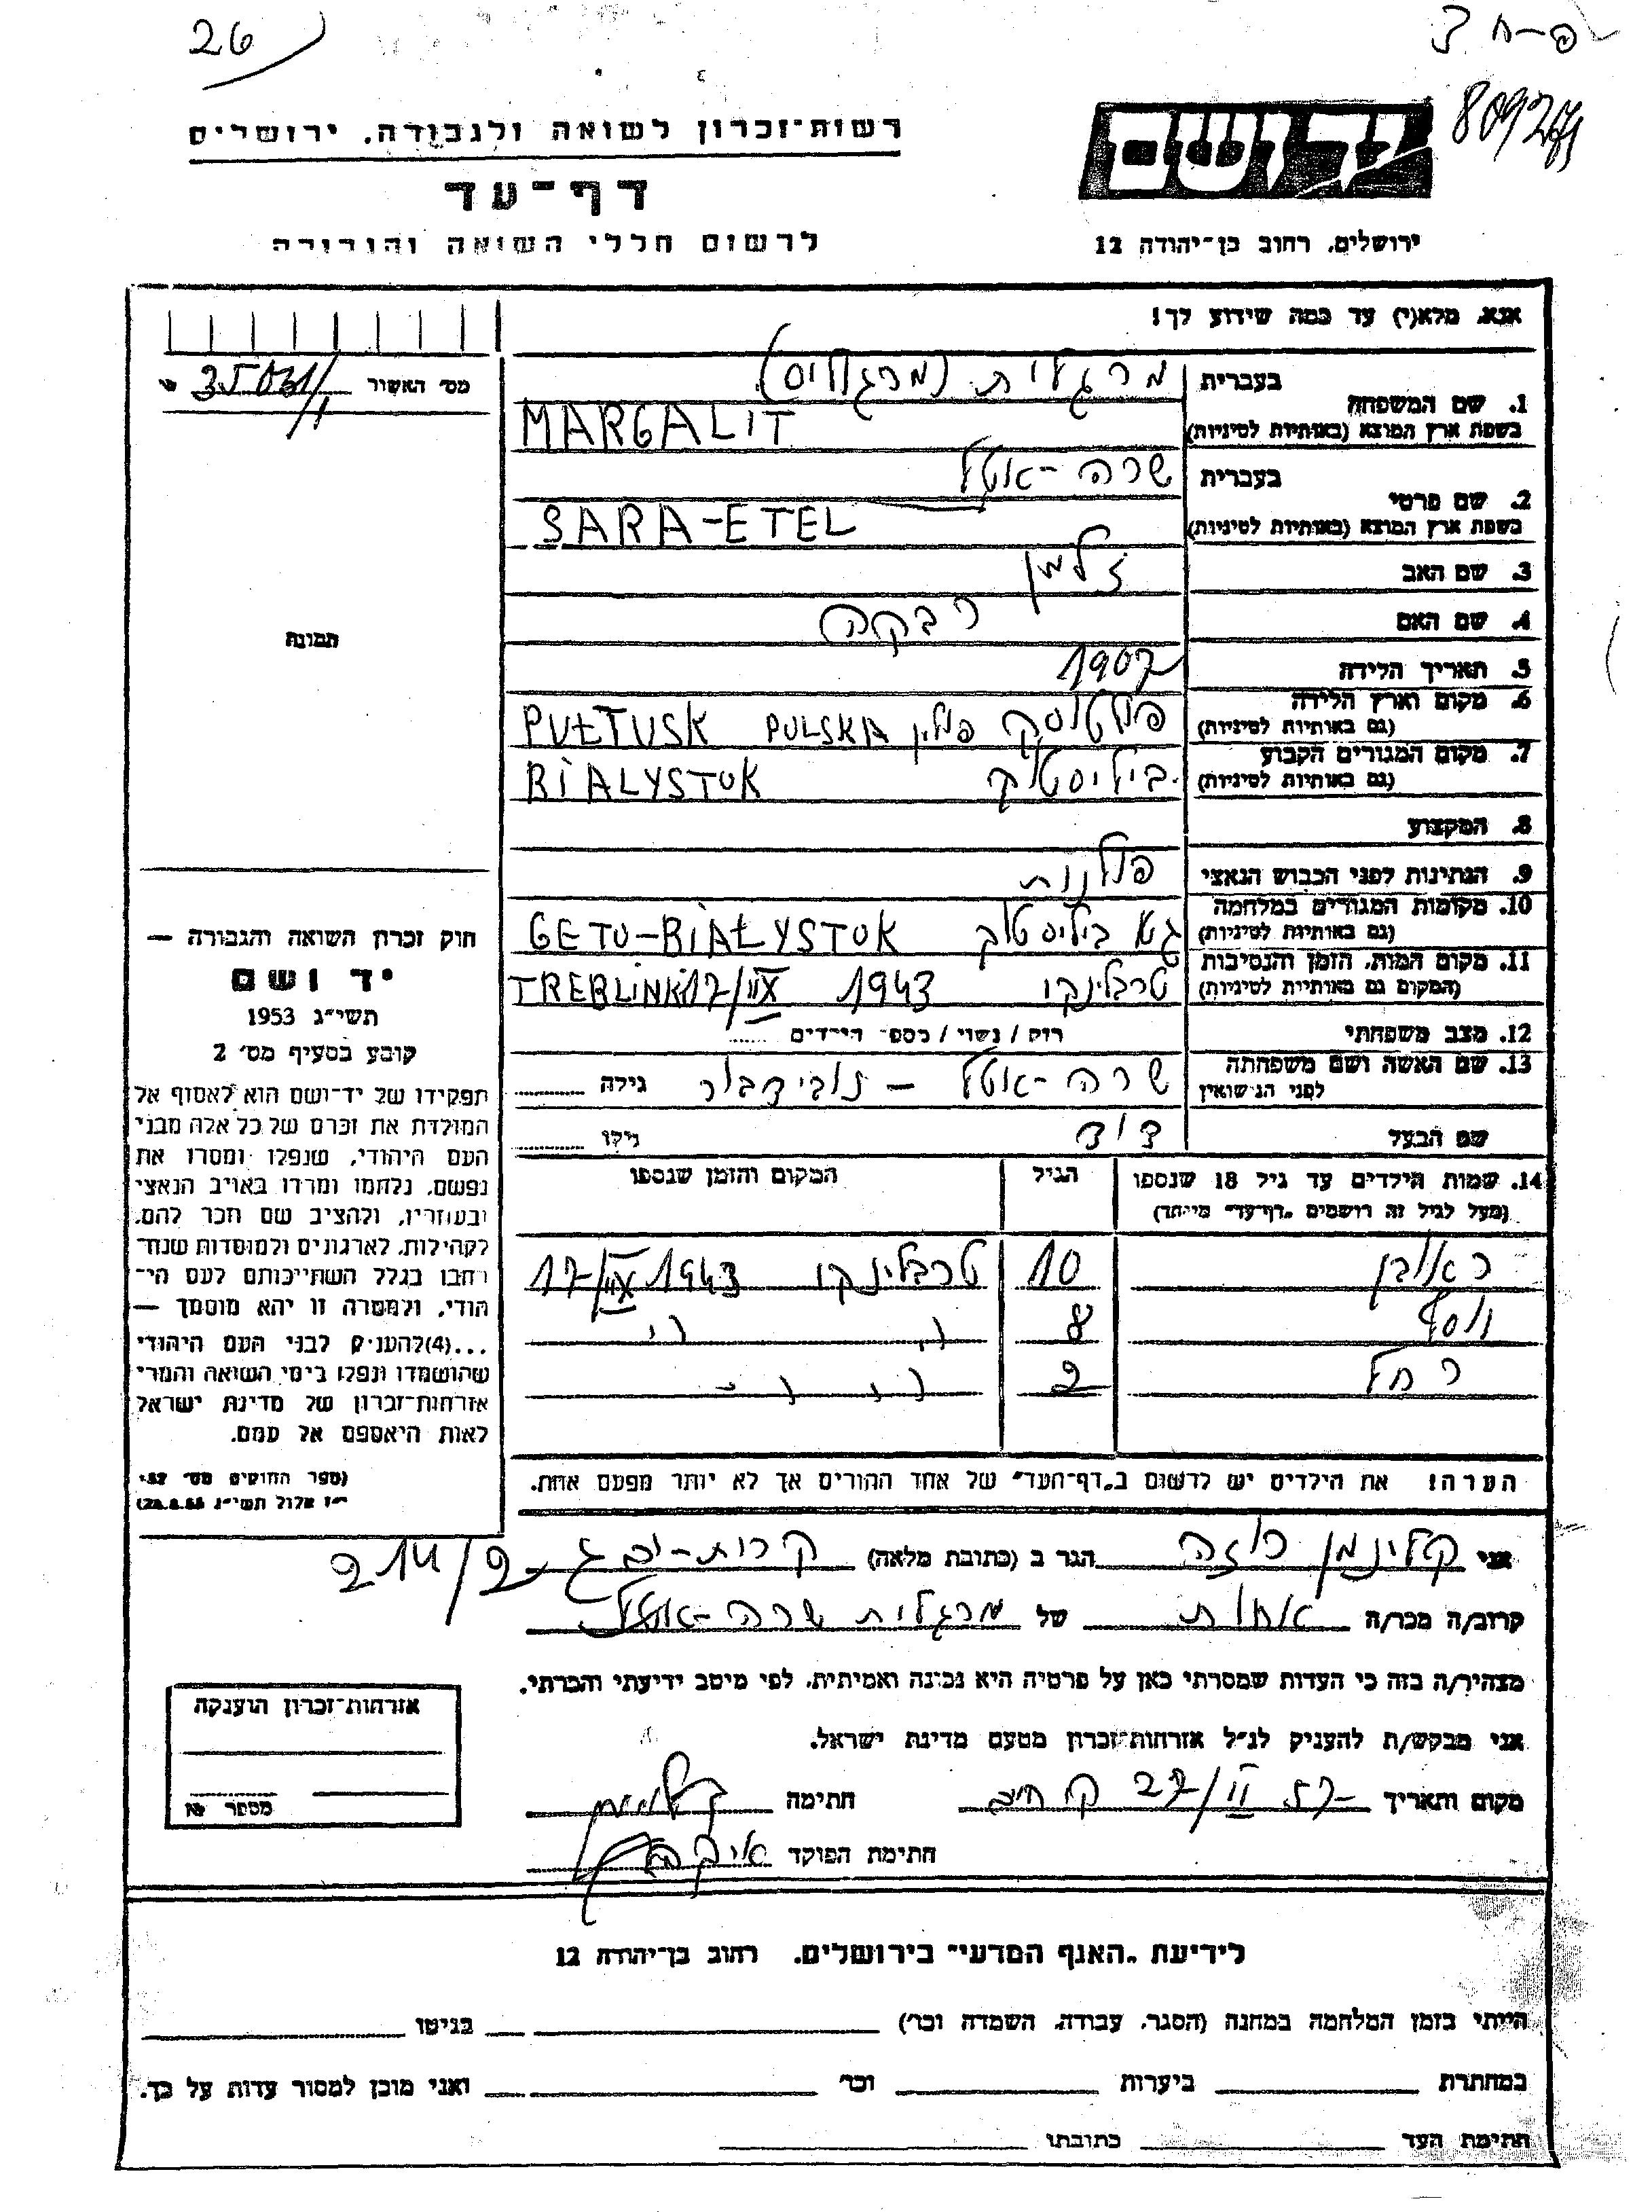 26
רשות־זכרון לשואה ולגבורה, ירושלים
דף־עד
לרשום חללי השואה והגבורה
יד ושם
ירושלים, רחוב בן־יהודה 12
אנא, מלא(י) עד כמה שידוע לך!
מס' האשור 35031/1
1. שם המשפחה
בעברית מרגלית (מרגוליס)
בשפת ארץ המוצא (באותיות לטיניות) MARGALIT
2. שם פרטי
בעברית שרה-אטל
בשפת ארץ המוצא (באותיות לטיניות) SARA-ETEL
3. שם האב זלמן
4. שם האם רבקה
5. תאריך הלידה 1907
6. מקום וארץ הלידה
(גם באותיות לטיניות) פולטוסק פולין PUŁTUSK POLSKA
7. מקום המגורים הקבוע
(גם באותיות לטיניות) ביליסטוק BIALYSTOK
8. המקצוע
9. הנתינות לפני הכבוש הנאצי פולנות
10. מקומות המגורים במלחמה
(גם באותיות לטיניות) גטו ביליסטוק GETO-BIAŁYSTOK
11. מקום המות, הזמן והנסיבות
(המקום גם באותיות לטיניות) טרבלינקו 1943 TREBLINKI
12. מצב משפחתי רוק / נשוי / מספר הילדים
13. שם האשה ושם משפחתה
לפני הנישואין שרה-אטל – גילה
שם הבעל דוד גילו
14. שמות הילדים עד גיל 18 שנספו
(מעל לגיל זה רושמים "דף־עד" מיוחד)
הגיל
המקום והזמן שנספו
ראובן 10 טרבלינקו 1943
יוסף 8 " "
רחל 2 " "
הערה! את הילדים יש לרשום ב"דף־העד" של אחד ההורים אך לא יותר מפעם אחת.
תמונה
חוק זכרון השואה והגבורה —
יד ושם
תשי"ג 1953
קובע בסעיף מס' 2
תפקידו של יד־ושם הוא לאסוף אל
המולדת את זכרם של כל אלה מבני
העם היהודי, שנפלו ומסרו את
נפשם, נלחמו ומרדו באויב הנאצי
ובעוזריו, ולהציב שם וזכר להם,
לקהילות, לארגונים ולמוסדות שנח־
רבו בגלל השתייכותם לעם הי־
הודי, ולמטרה זו יהא מוסמך —
...(4)להעניק לבני העם היהודי
שהושמדו ונפלו בימי השואה והמרי
אזרחות־זכרון של מדינת ישראל
לאות היאספם אל עמם.
(ספר החוקים מס' 132
י"ז אלול תשי"ג 28.8.53)
אני קלינמן רוזה הגר ב (כתובת מלאה) 214/2
קרוב/ה מכר/ה אחות של מרגלית שרה-אטל
מצהיר/ה בזה כי העדות שמסרתי כאן על פרטיה היא נכונה ואמיתית, לפי מיטב ידיעתי והכרתי.
אני מבקש/ת להעניק לנ"ל אזרחות־זכרון מטעם מדינת ישראל.
מקום ותאריך 27/II 57 חתימה
חתימת הפוקד
אזרחות־זכרון הוענקה
מספר
לידיעת "האגף המדעי" בירושלים, רחוב בן־יהודה 12
הייתי בזמן המלחמה במחנה (הסגר, עבודה, השמדה וכו') בגיטו
במחתרת ביערות וכו' ואני מוכן למסור עדות על כך.
חתימת העד כתובתו